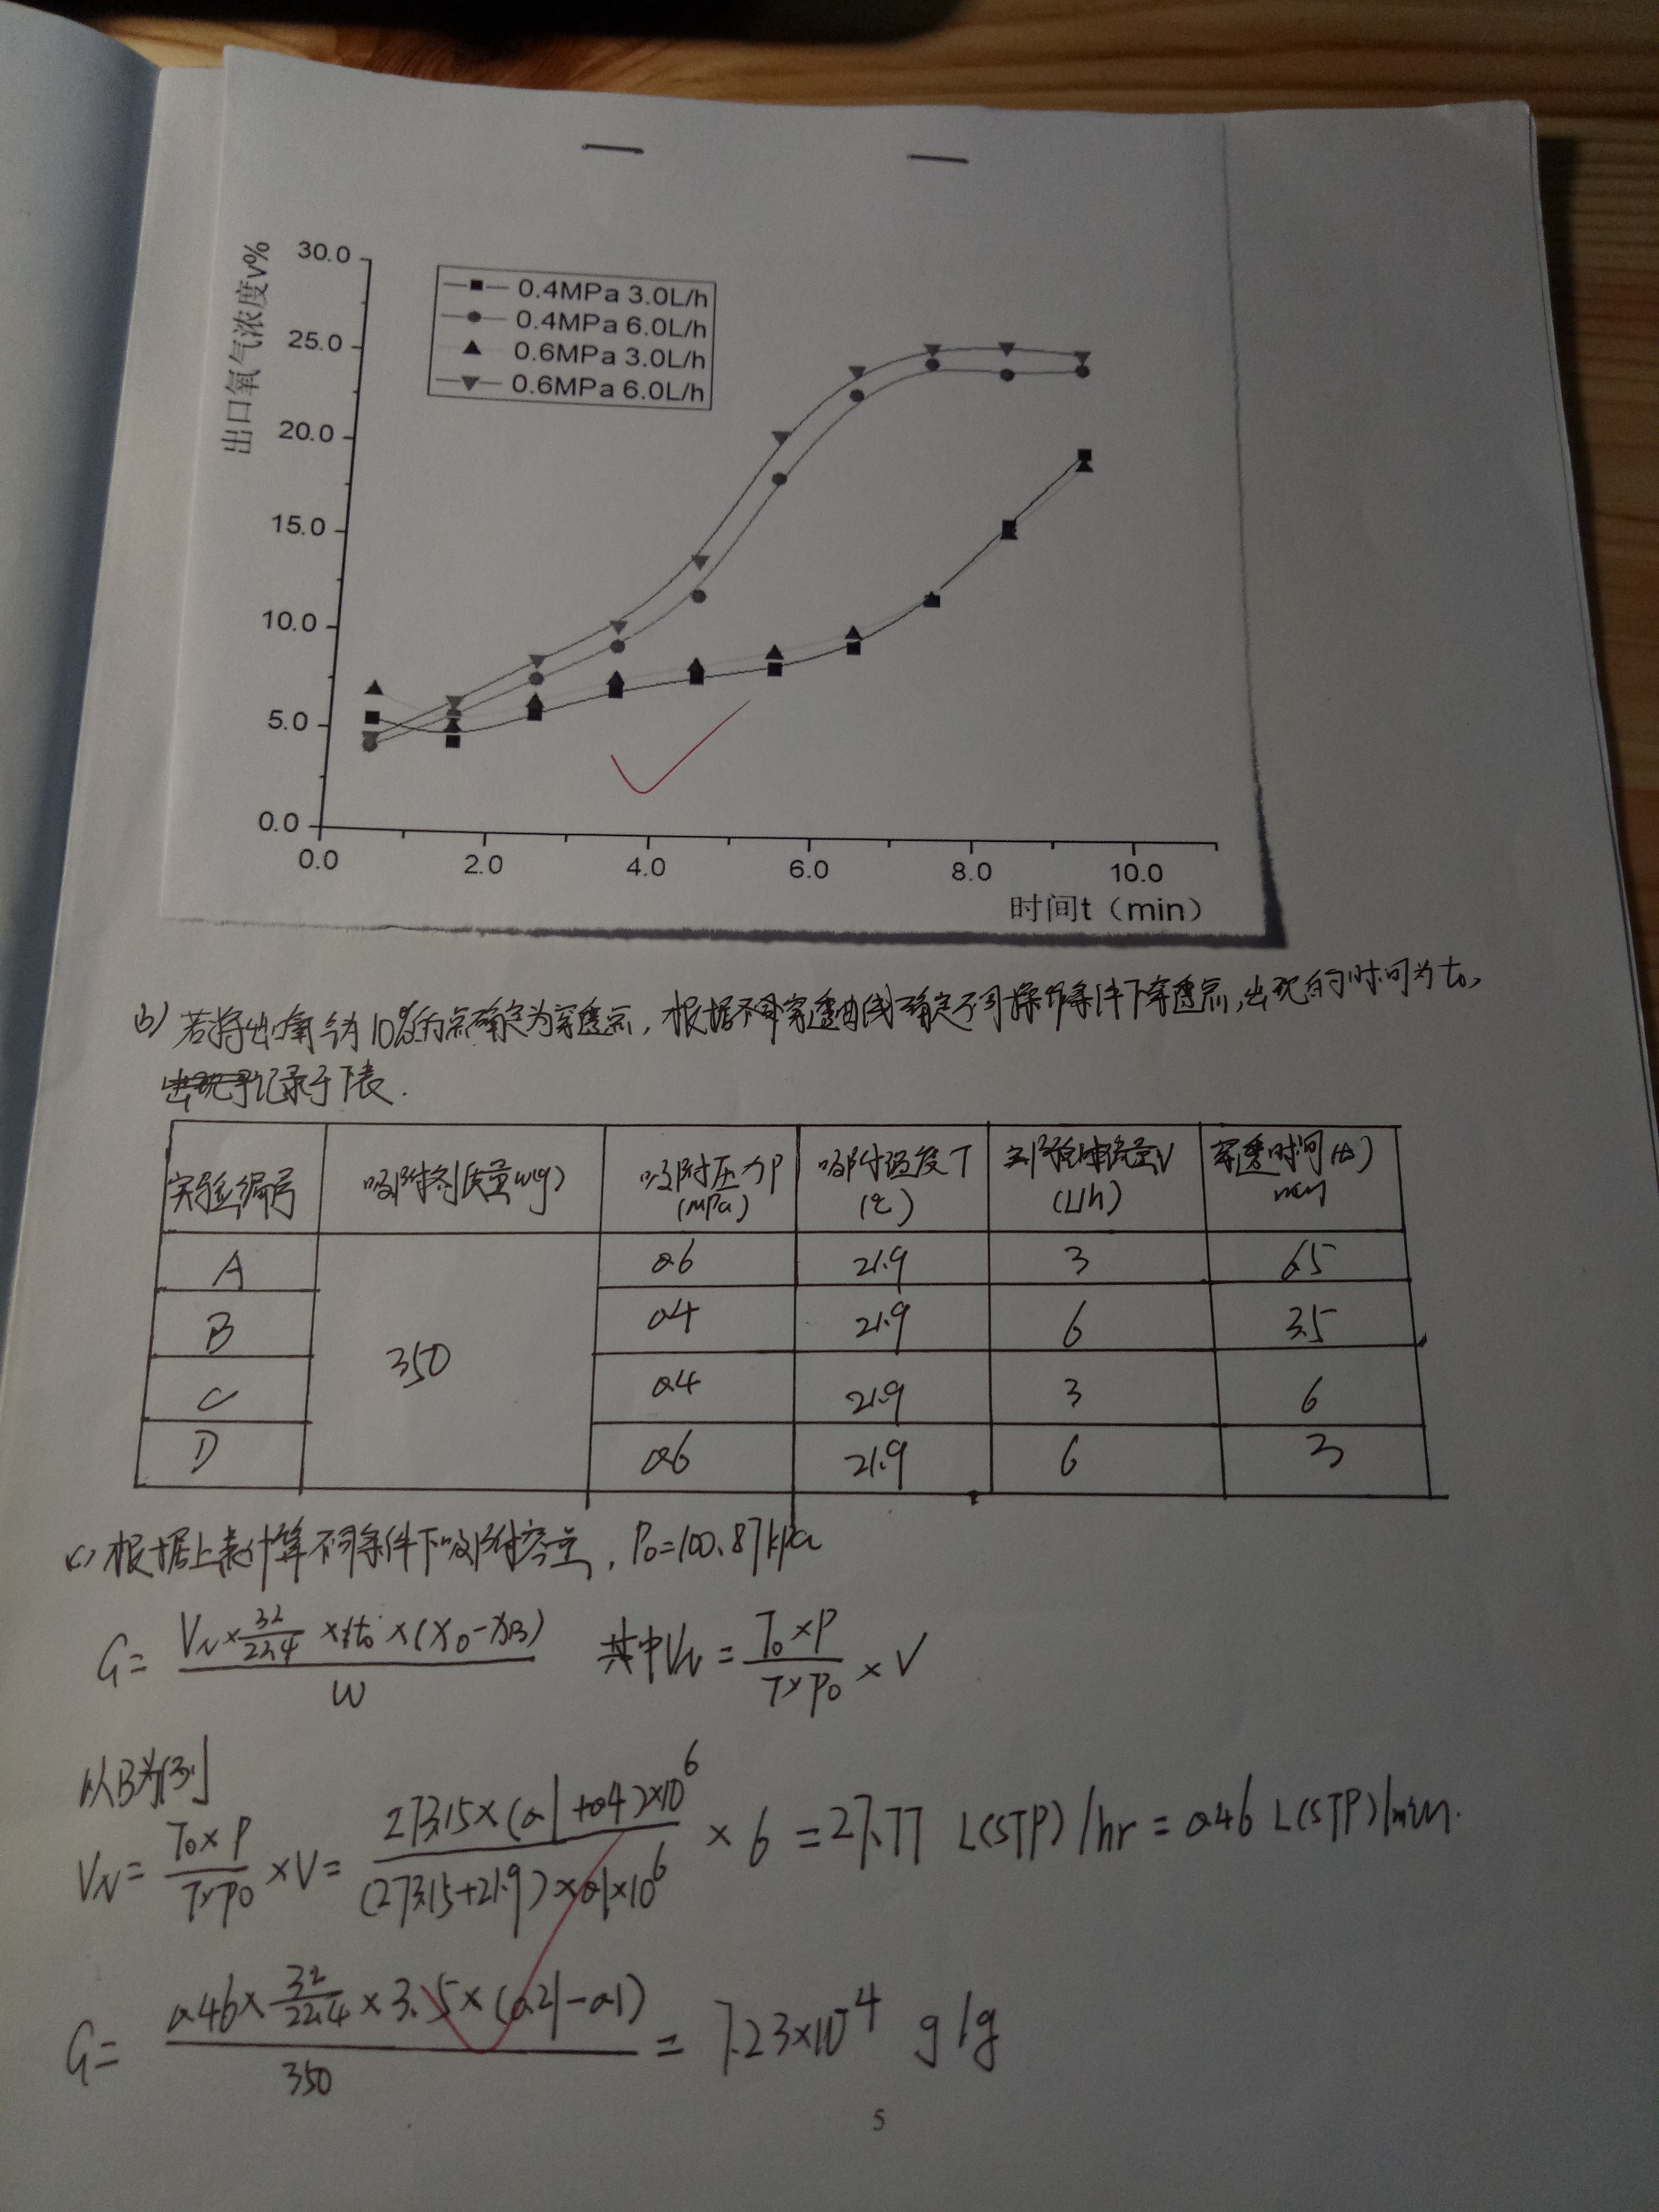 出口氧气浓度v%
30.0
25.0
20.0
15.0
10.0
5.0
0.0
0.4MPa 3.0L/h
0.4MPa 6.0L/h
0.6MPa 3.0L/h
0.6MPa 6.0L/h
0.0 2.0 4.0 6.0 8.0 10.0
时间t（min）
b) 若将出口氧气为10%的点确定为穿透点, 根据不同穿透曲线确定不同操作条件下穿透点, 出现的时间为t₀,
记录于下表.
实验编号 吸附剂质量w(g) 吸附压力P(MPa) 吸附温度T(℃) 实际气体流量V(L/h) 穿透时间(t₀)min
A 350 0.6 21.9 3 6.5
B 0.4 21.9 6 3.5
C 0.4 21.9 3 6
D 0.6 21.9 6 3
c) 根据上表计算不同条件下吸附容量, P₀=100.87kPa
G= VN×32/22.4×t₀×(X₀-XB) / W 其中VN= T₀×P / T×P₀ ×V
以B为例
VN= T₀×P / T×P₀ ×V= 273.15×(0.1+0.4)×10⁶ / (273.15+21.9)×0.1×10⁶ ×6 =27.77 L(STP)/hr=0.46 L(STP)/min.
G= 0.46×32/22.4×3.5×(0.21-0.1) / 350 = 7.23×10⁻⁴ g/g
5